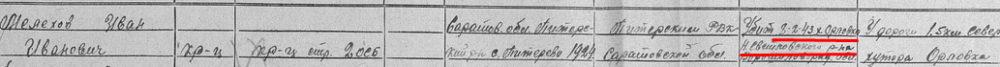 Мелехов Иван
Иванович
кр-ц
кр-ц стр. 2осб
Саратов. обл. Питерс-
кий р-н с. Питерево 1924
Питерским РВК
Саратовской обл.
Убит 8-2-43 х. Орловка
Н. Светловского р-на
обл.
У дороги 1.5км север
хутора Орловка